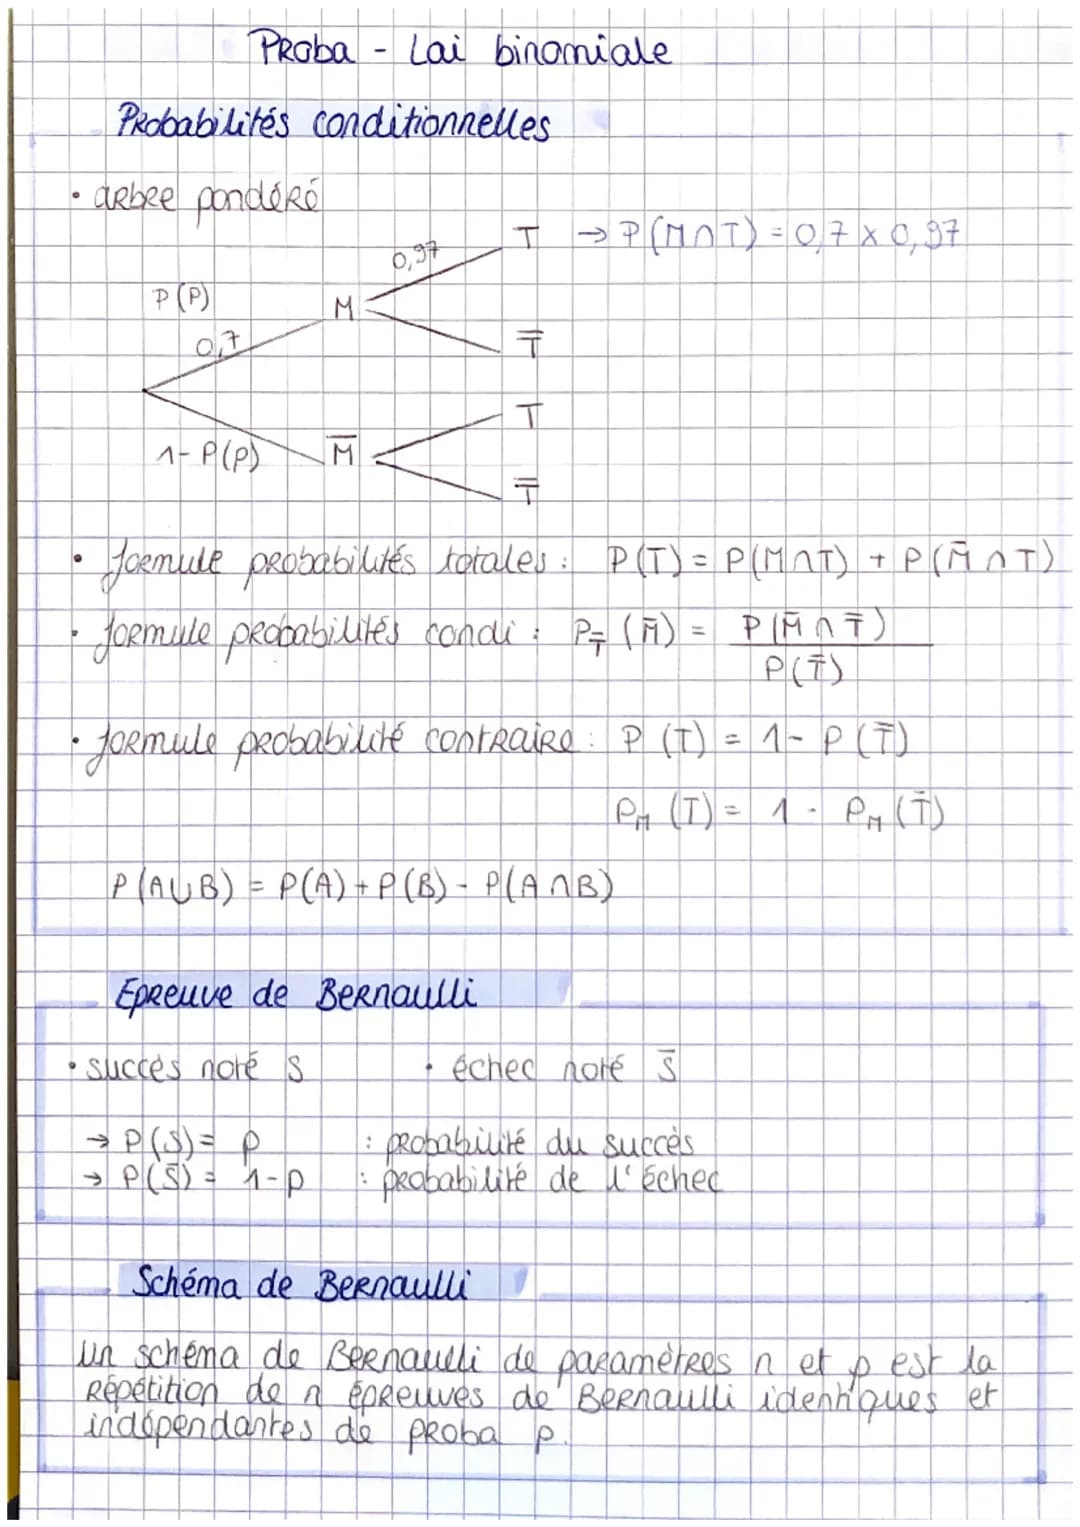 Proba - Loi binomiale
Probabilités conditionnelles
• arbre pondéré
T → P(M∩T) = 0,7 x 0,97
0,97
P(P)
M
0,7
T̅
T
1-P(P)
M̅
T̅
• formule probabilités totales : P(T) = P(M∩T) + P(M̅∩T)
• formule probabilités condi : P_T̅ (M̅) = P(M̅∩T̅)
P(T̅)
• formule probabilité contraire : P (T) = 1- P (T̅)
P_M (T) = 1 - P_M (T̅)
P(A∪B) = P(A) + P(B) - P(A∩B)
Epreuve de Bernoulli
• succès noté S • échec noté S̅
→ P(S) = p : probabilité du succès
→ P(S̅) = 1-p : probabilité de l'échec
Schéma de Bernoulli
un schéma de Bernoulli de paramètres n et p est la
répétition de n épreuves de Bernoulli identiques et
indépendantes de proba p.